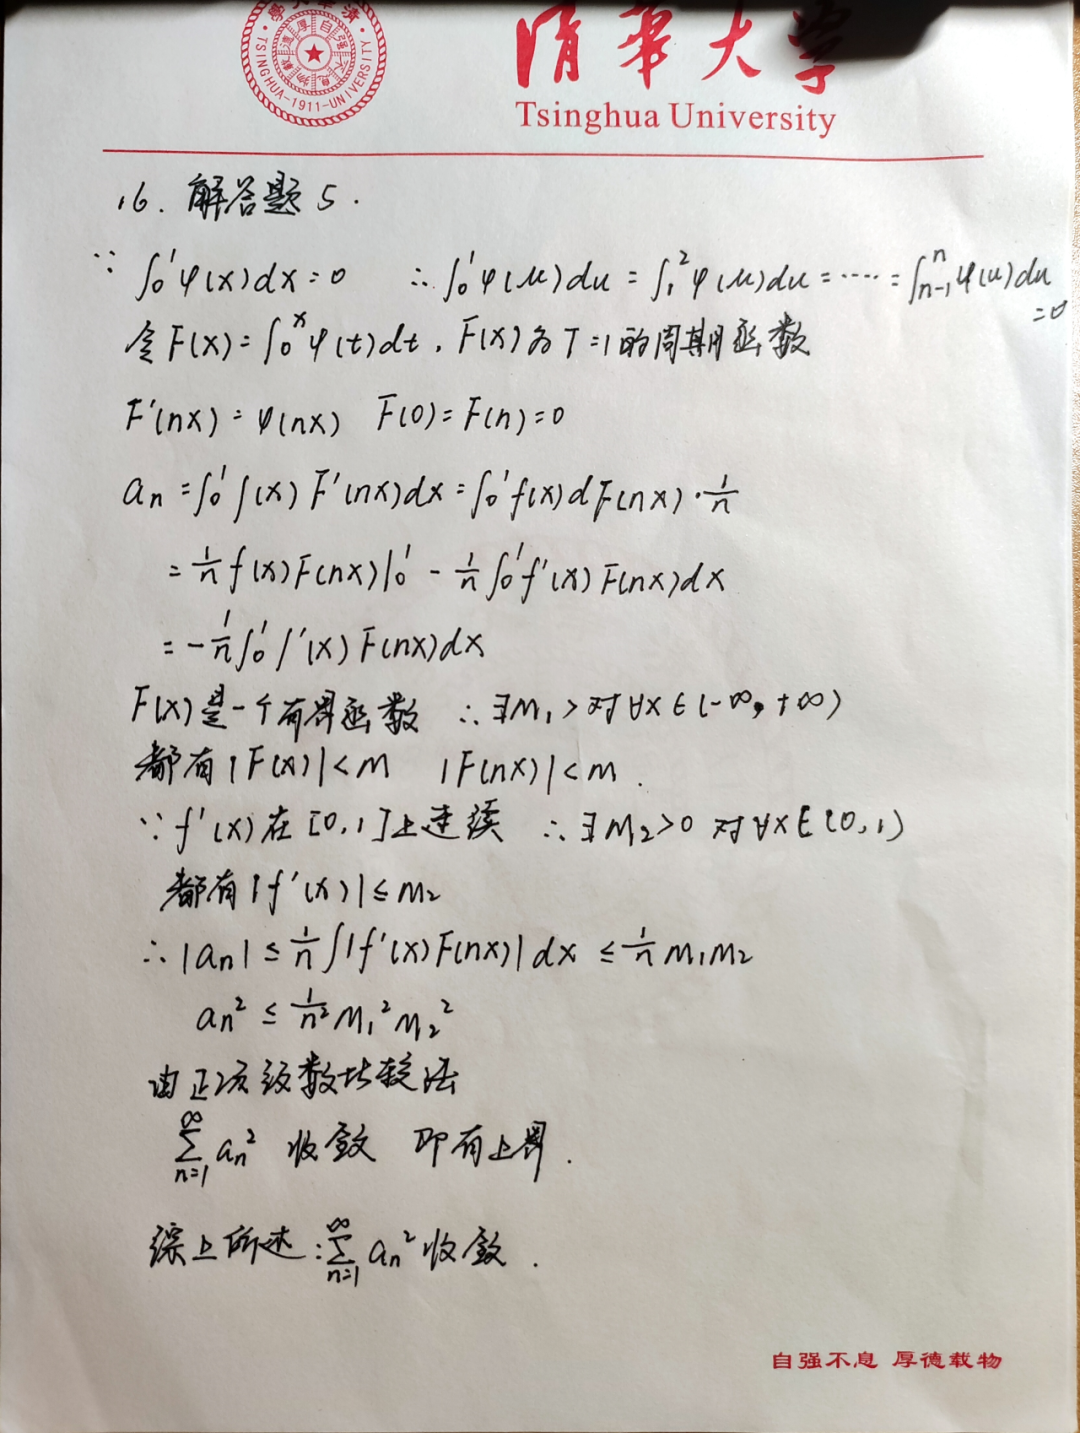 清華大学
TSINGHUA-1911-UNIVERSITY
自强不息
Tsinghua University
16. 解答题 5.
∵ ∫₀¹φ(x)dx=0 ∴ ∫₀¹φ(u)du = ∫₁²φ(u)du = ····· = ∫ₙ₋₁ⁿφ(u)du
=0
令 F(x)=∫₀ˣφ(t)dt, F(x)为T=1的周期函数
F'(nx)=φ(nx) F(0)=F(n)=0
aₙ =∫₀¹f(x) F'(nx)dx =∫₀¹f(x)dF(nx)·1/n
= 1/n f(x)F(nx)|₀¹ - 1/n ∫₀¹f'(x) F(nx)dx
= -1/n∫₀¹f'(x) F(nx)dx
F(x)是一个有界函数 ∴ ∃M₁> 对∀x∈(-∞, +∞)
都有|F(x)|<M |F(nx)|<M.
∵ f'(x)在[0,1]上连续 ∴ ∃M₂>0 对∀x∈(0,1)
都有|f'(x)|≤M₂
∴ |aₙ| ≤ 1/n ∫|f'(x)F(nx)|dx ≤ 1/n M₁M₂
aₙ² ≤ 1/n² M₁²M₂²
由正项级数比较法
∞∑n=1 aₙ² 收敛 即有上界.
综上所述: ∞∑n=1 aₙ² 收敛.
自强不息 厚德载物